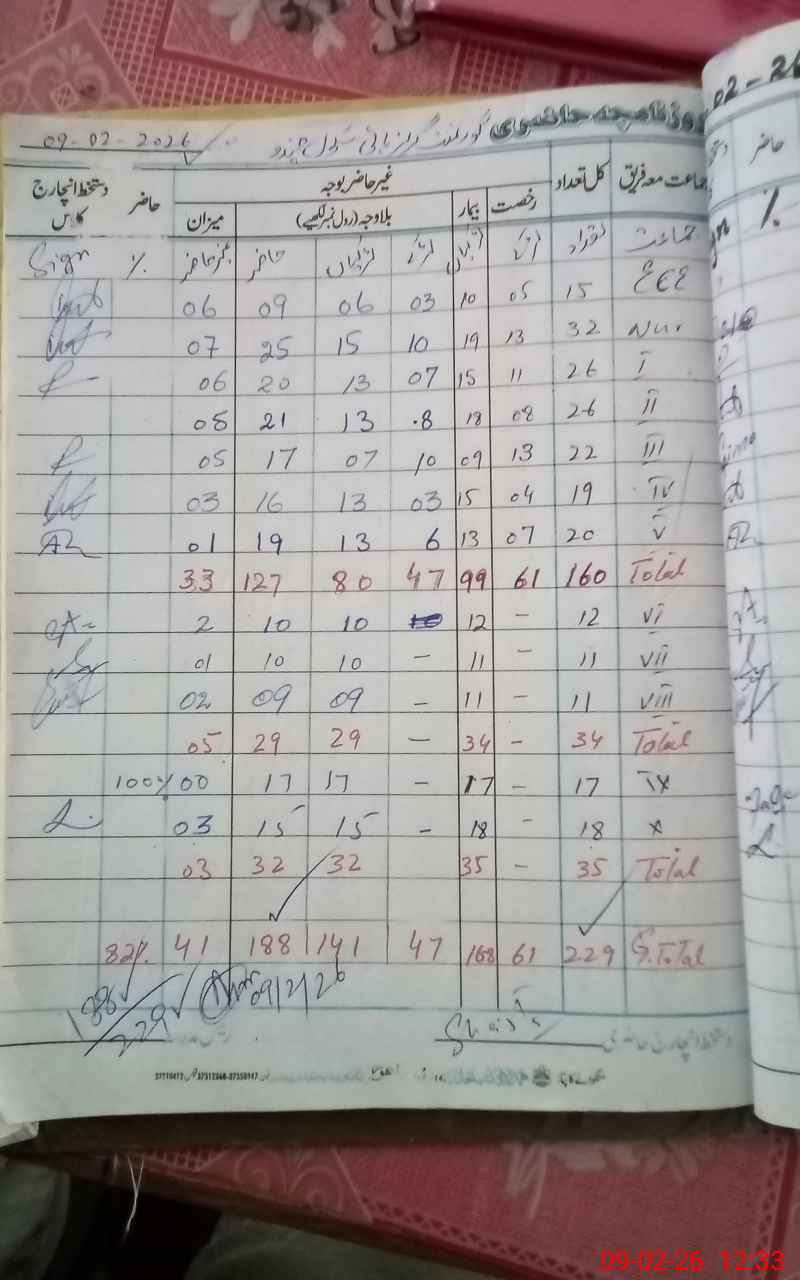 روزنامچہ حاضری گورنمنٹ گرلز ہائی سکول 09-02-2026
جماعت معہ فریق کل تعداد غیر حاضر بوجہ حاضر دستخط انچارج کلاس
رخصت بیمار بلاوجہ (رول نمبر لکھیے) میزان
جماعت تعداد لڑکے لڑکیاں لڑکے لڑکیاں حاضر غیر حاضر % Sign
ECE 15 05 10 03 06 09 06
Nur 32 13 19 10 15 25 07
I 26 11 15 07 13 20 06
II 26 08 18 08 13 21 05
III 22 13 09 10 07 17 05
IV 19 04 15 03 13 16 03
V 20 07 13 6 13 19 01
Total 160 61 99 47 80 127 33
VI 12 - 12 10 10 2
VII 11 - 11 - 10 10 01
VIII 11 - 11 - 09 09 02
Total 34 - 34 - 29 29 05
IX 17 - 17 - 17 17 00 100%
X 18 - 18 - 15 15 03
Total 35 - 35 32 32 03
G.Total 229 61 168 47 141 188 41 82%
188/229 09/2/26
دستخط انچارج حاضری
02-26
حاضر
%
09-02-26 12:33